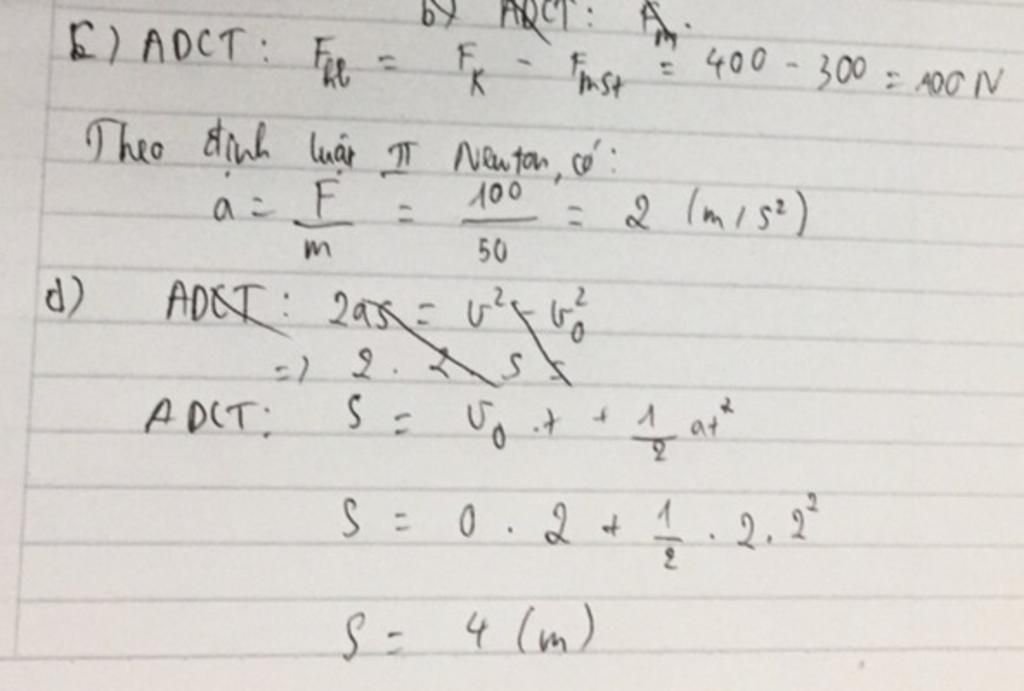 b) ADCT: Am.
c) ADCT: Fhl = FK - Fmst = 400 - 300 = 100 N
Theo định luật II Newton, có:
a = F/m = 100/50 = 2 (m/s²)
d) ADCT: 2as = v² - v₀²
=> 2 . 2 s s
ADCT: S = v₀.t + 1/2 at²
S = 0 . 2 + 1/2 . 2 . 2²
S = 4 (m)